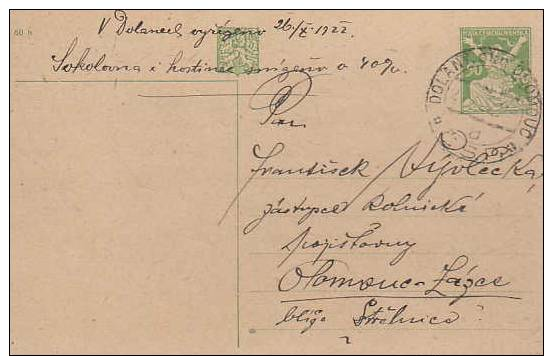 60 h
V Dolanech vyřízeno 26./X. 1922.
Sokolovna i hostinec snížena o 40%.
POŠTA ČESKOSLOVENSKÁ
50
DOLANY OLOMOUC
Pan
František Vývlečka,
zástupce Rolnické
pojišťovny
Olomouc-Lázce
blíže Střelnice